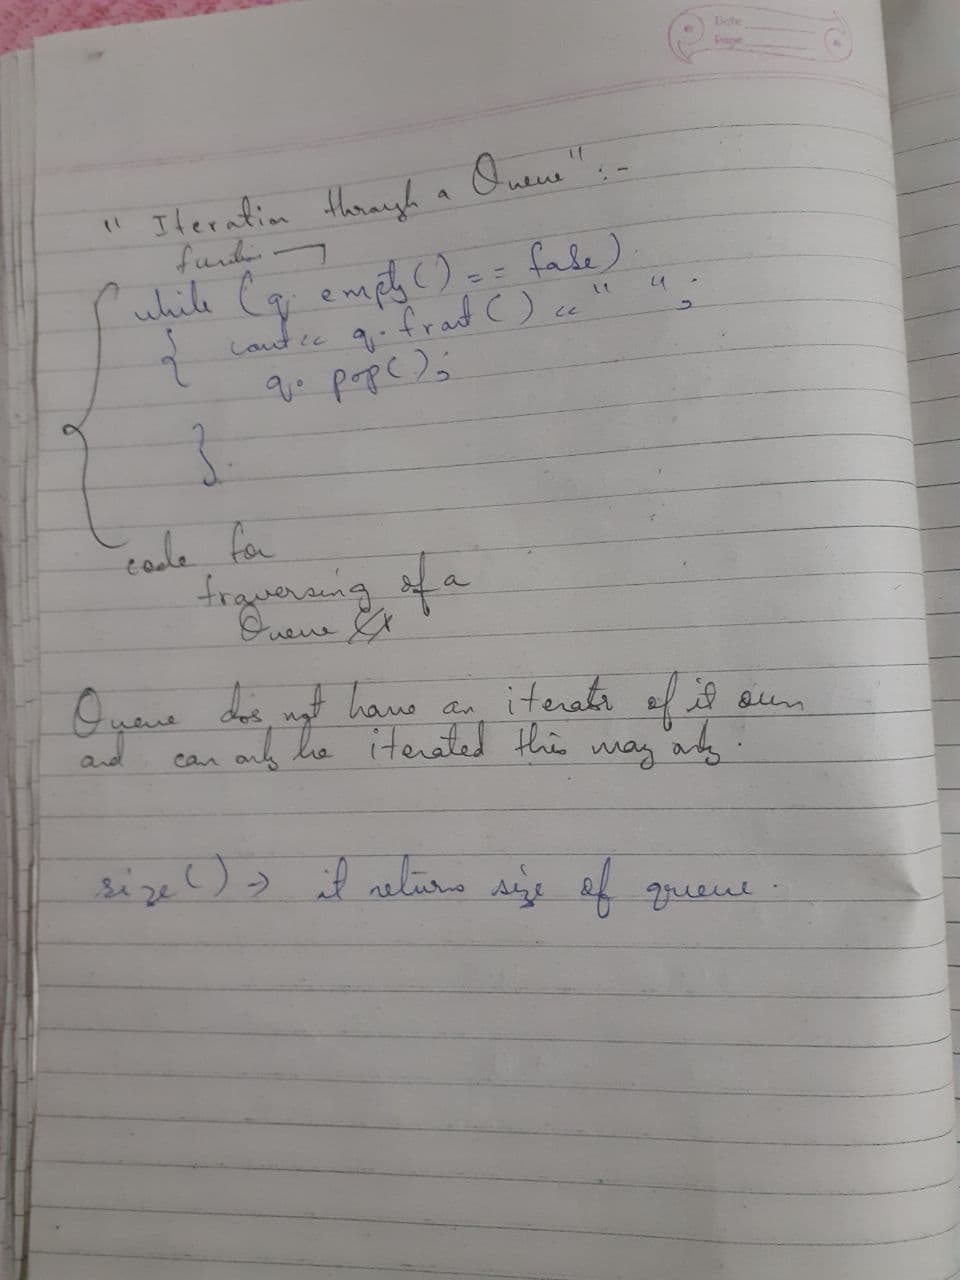 Date
Page
" Iteration through a Queue" :-
function
while (q. empty() == false)
{ cout << q. front() << " " ;
q. pop();
}.
code for
traversing of a
Queue
Queue dos not have an iterator of it own
and can only be iterated this way only.
size() → it returns size of queue.